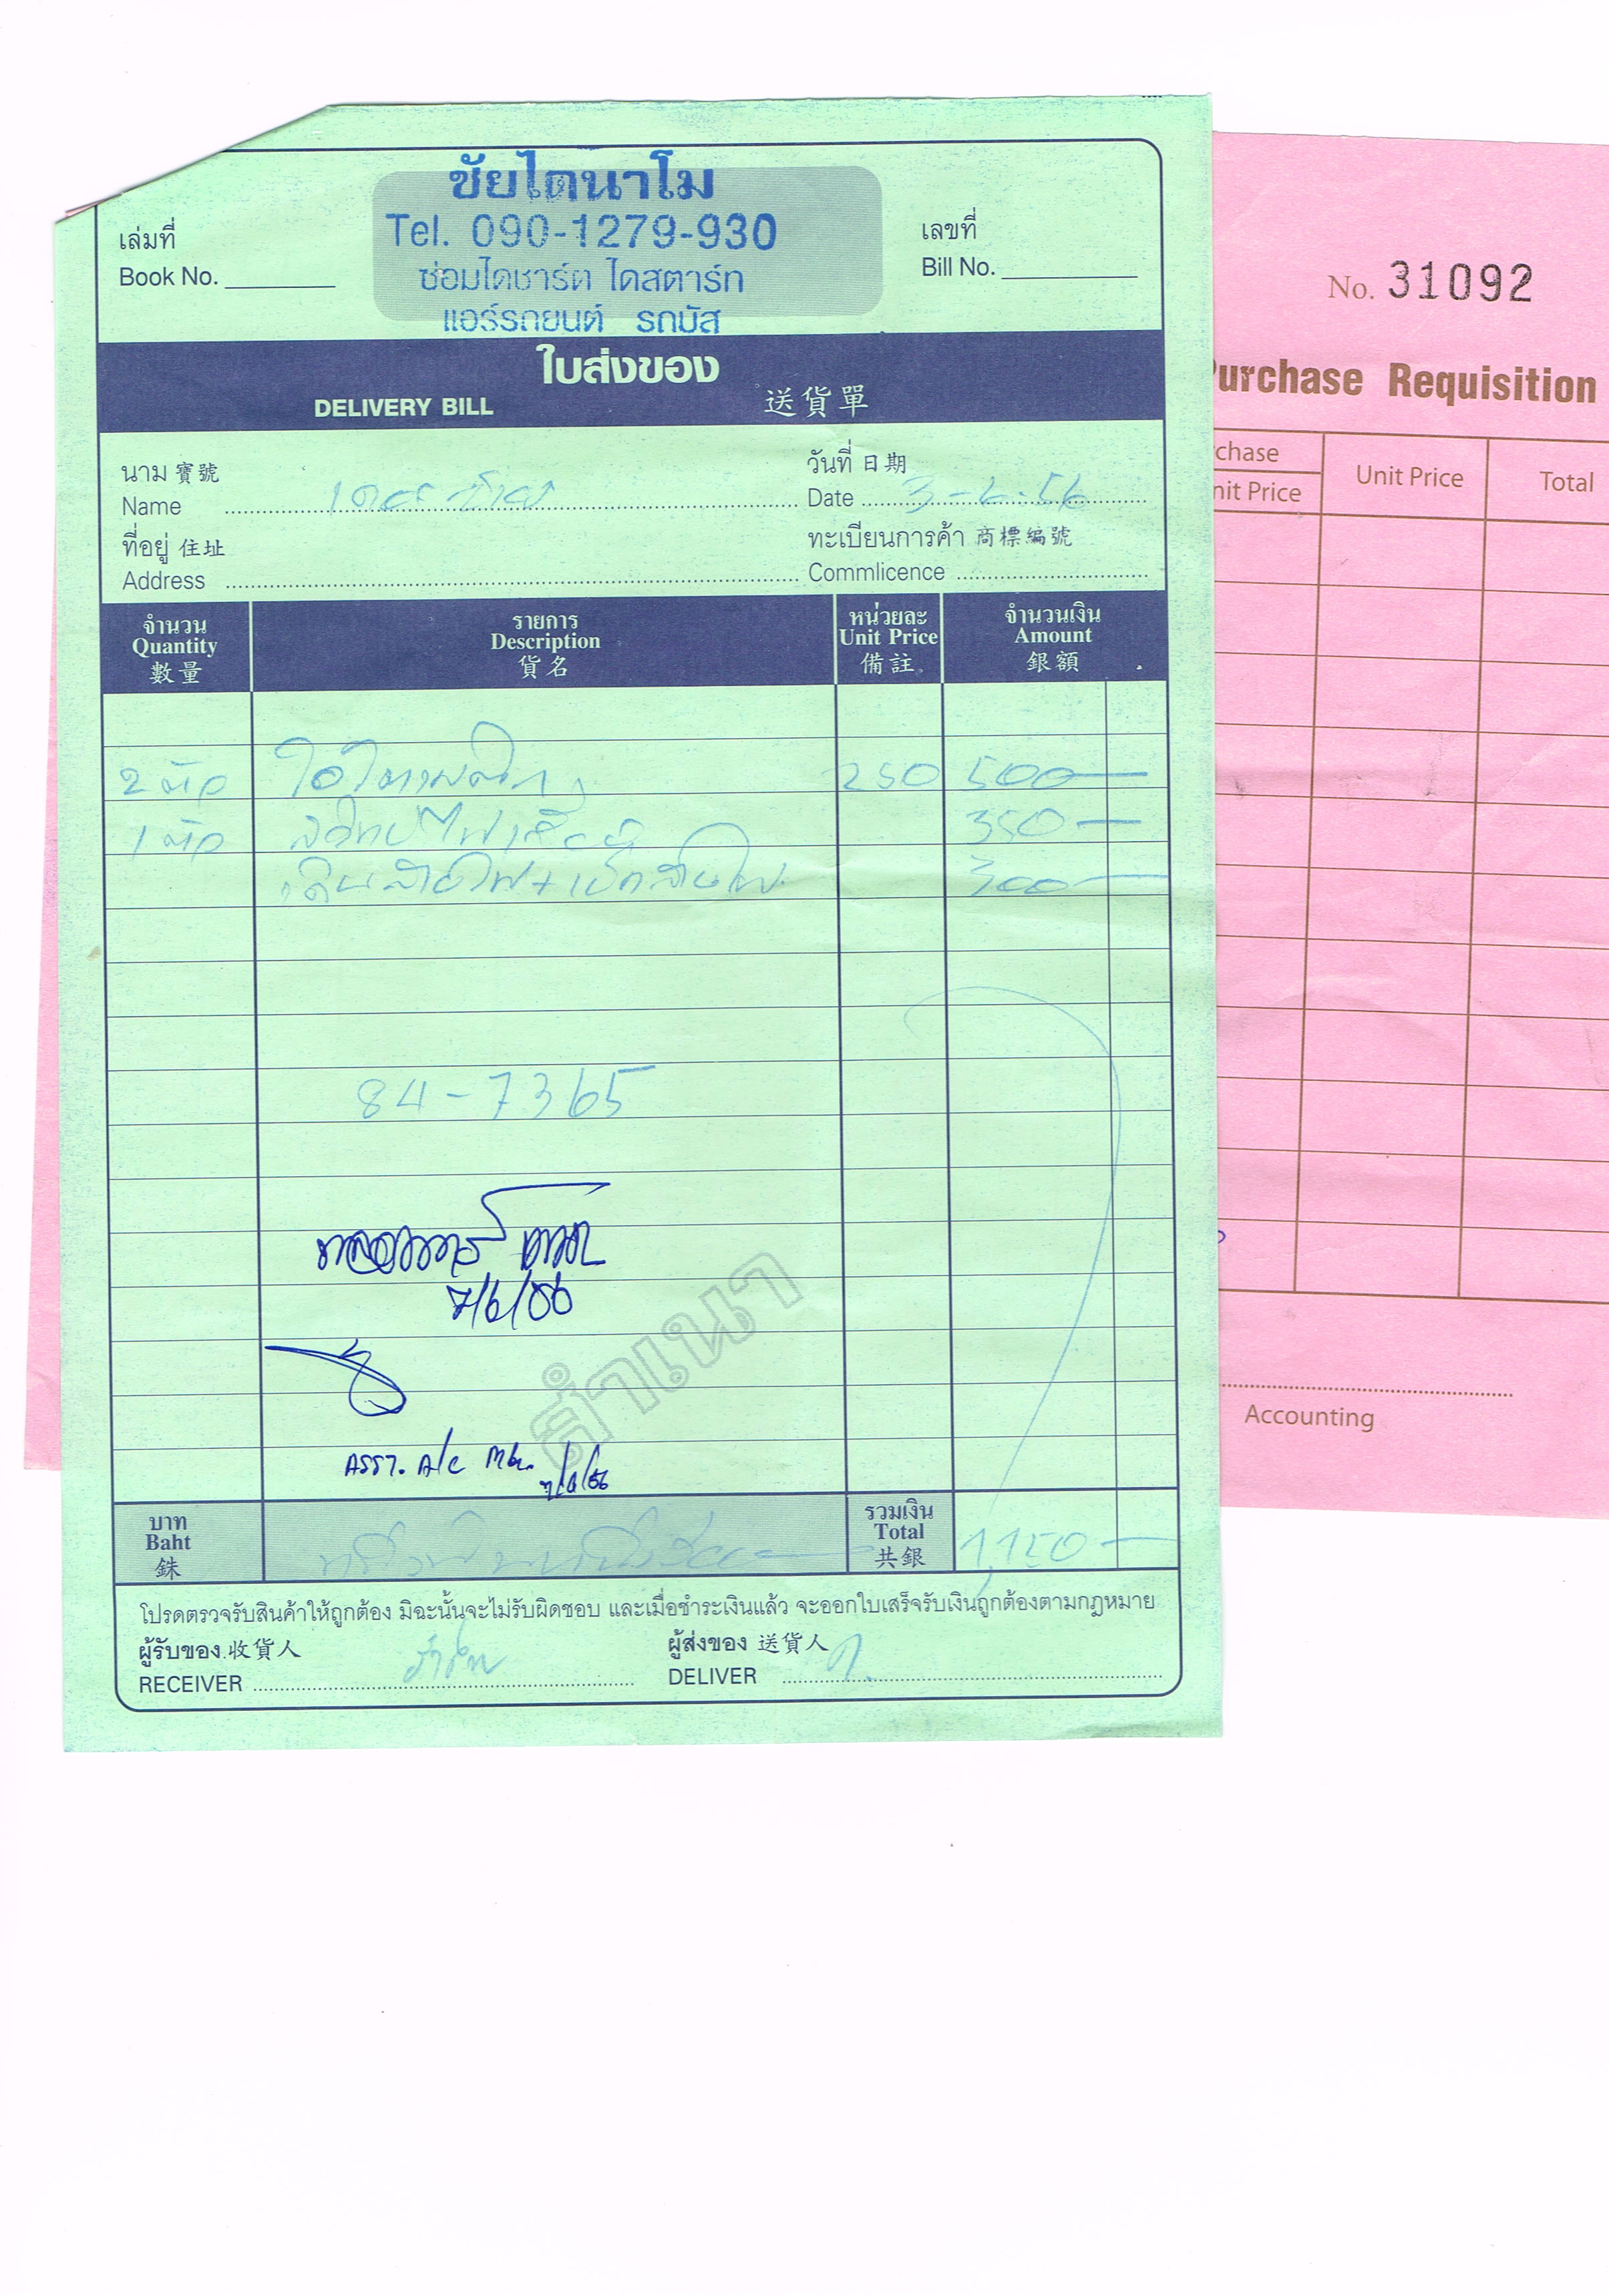 ชัยไดนาโม
Tel. 090-1279-930
ซ่อมไดชาร์ต ไดสตาร์ท
แอร์รถยนต์ รถบัส
เล่มที่
Book No.
เลขที่
Bill No.
ใบส่งของ
DELIVERY BILL 送貨單
นาม 寶號
Name
วันที่ 日期
Date 3-6-56
ที่อยู่ 住址
Address
ทะเบียนการค้า 商標編號
Commlicence
จำนวน รายการ หน่วยละ จำนวนเงิน
Quantity Description Unit Price Amount
數量 貨名 備註 銀額
2 ตัว 250 500
1 ตัว 350
เดินสายไฟ+เช็คสายไฟ 300
84-7365
7/6/56
ASST. A/C 7/6/56
สำเนา
บาท
Baht
銖
รวมเงิน
Total
共銀
1,150
โปรดตรวจรับสินค้าให้ถูกต้อง มิฉะนั้นจะไม่รับผิดชอบ และเมื่อชำระเงินแล้ว จะออกใบเสร็จรับเงินถูกต้องตามกฎหมาย
ผู้รับของ 收貨人
RECEIVER
ผู้ส่งของ 送貨人
DELIVER
No. 31092
Purchase Requisition
chase
nit Price
Unit Price
Total
Accounting